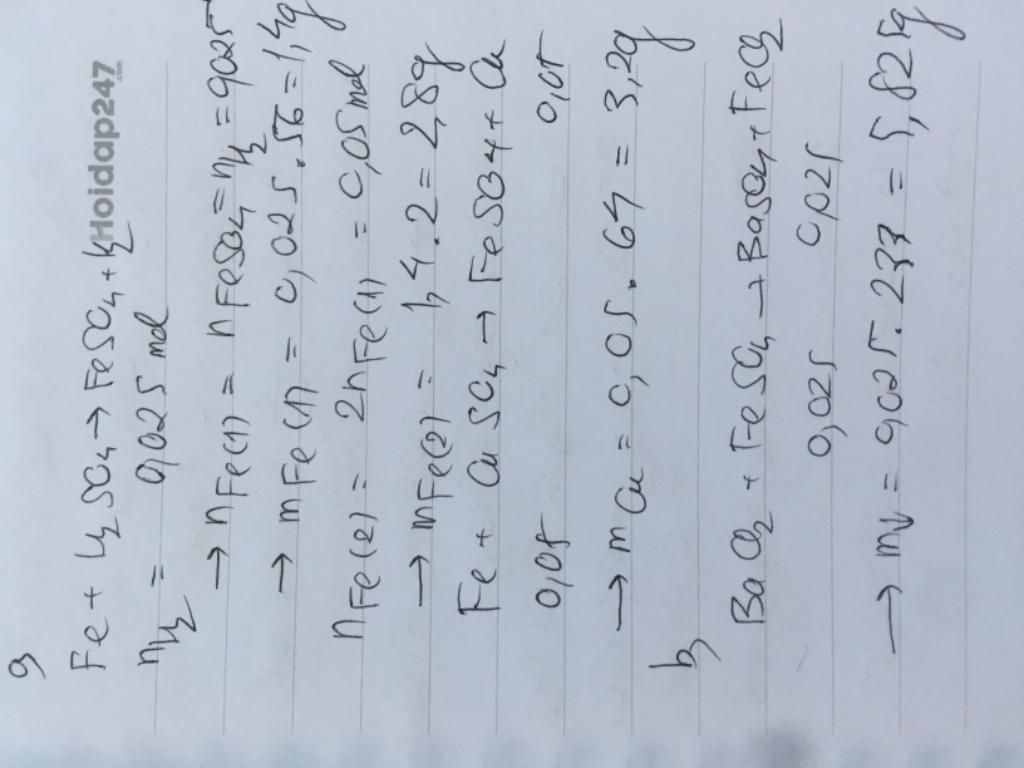 a,
Fe + H2SO4 → FeSO4 + H2
nH2 = 0,025 mol
→ nFe(1) = nFeSO4 = nH2 = 0,025
→ mFe(1) = 0,025 . 56 = 1,4g
nFe(2) = 2nFe(1) = 0,05 mol
→ mFe(2) = 1,4 . 2 = 2,8g
Fe + CuSO4 → FeSO4 + Cu
0,05 0,05
→ mCu = 0,05 . 64 = 3,2g
b,
BaCl2 + FeSO4 → BaSO4 + FeCl2
0,025 0,025
→ m↓ = 0,025 . 233 = 5,825g
Hoidap247
.com